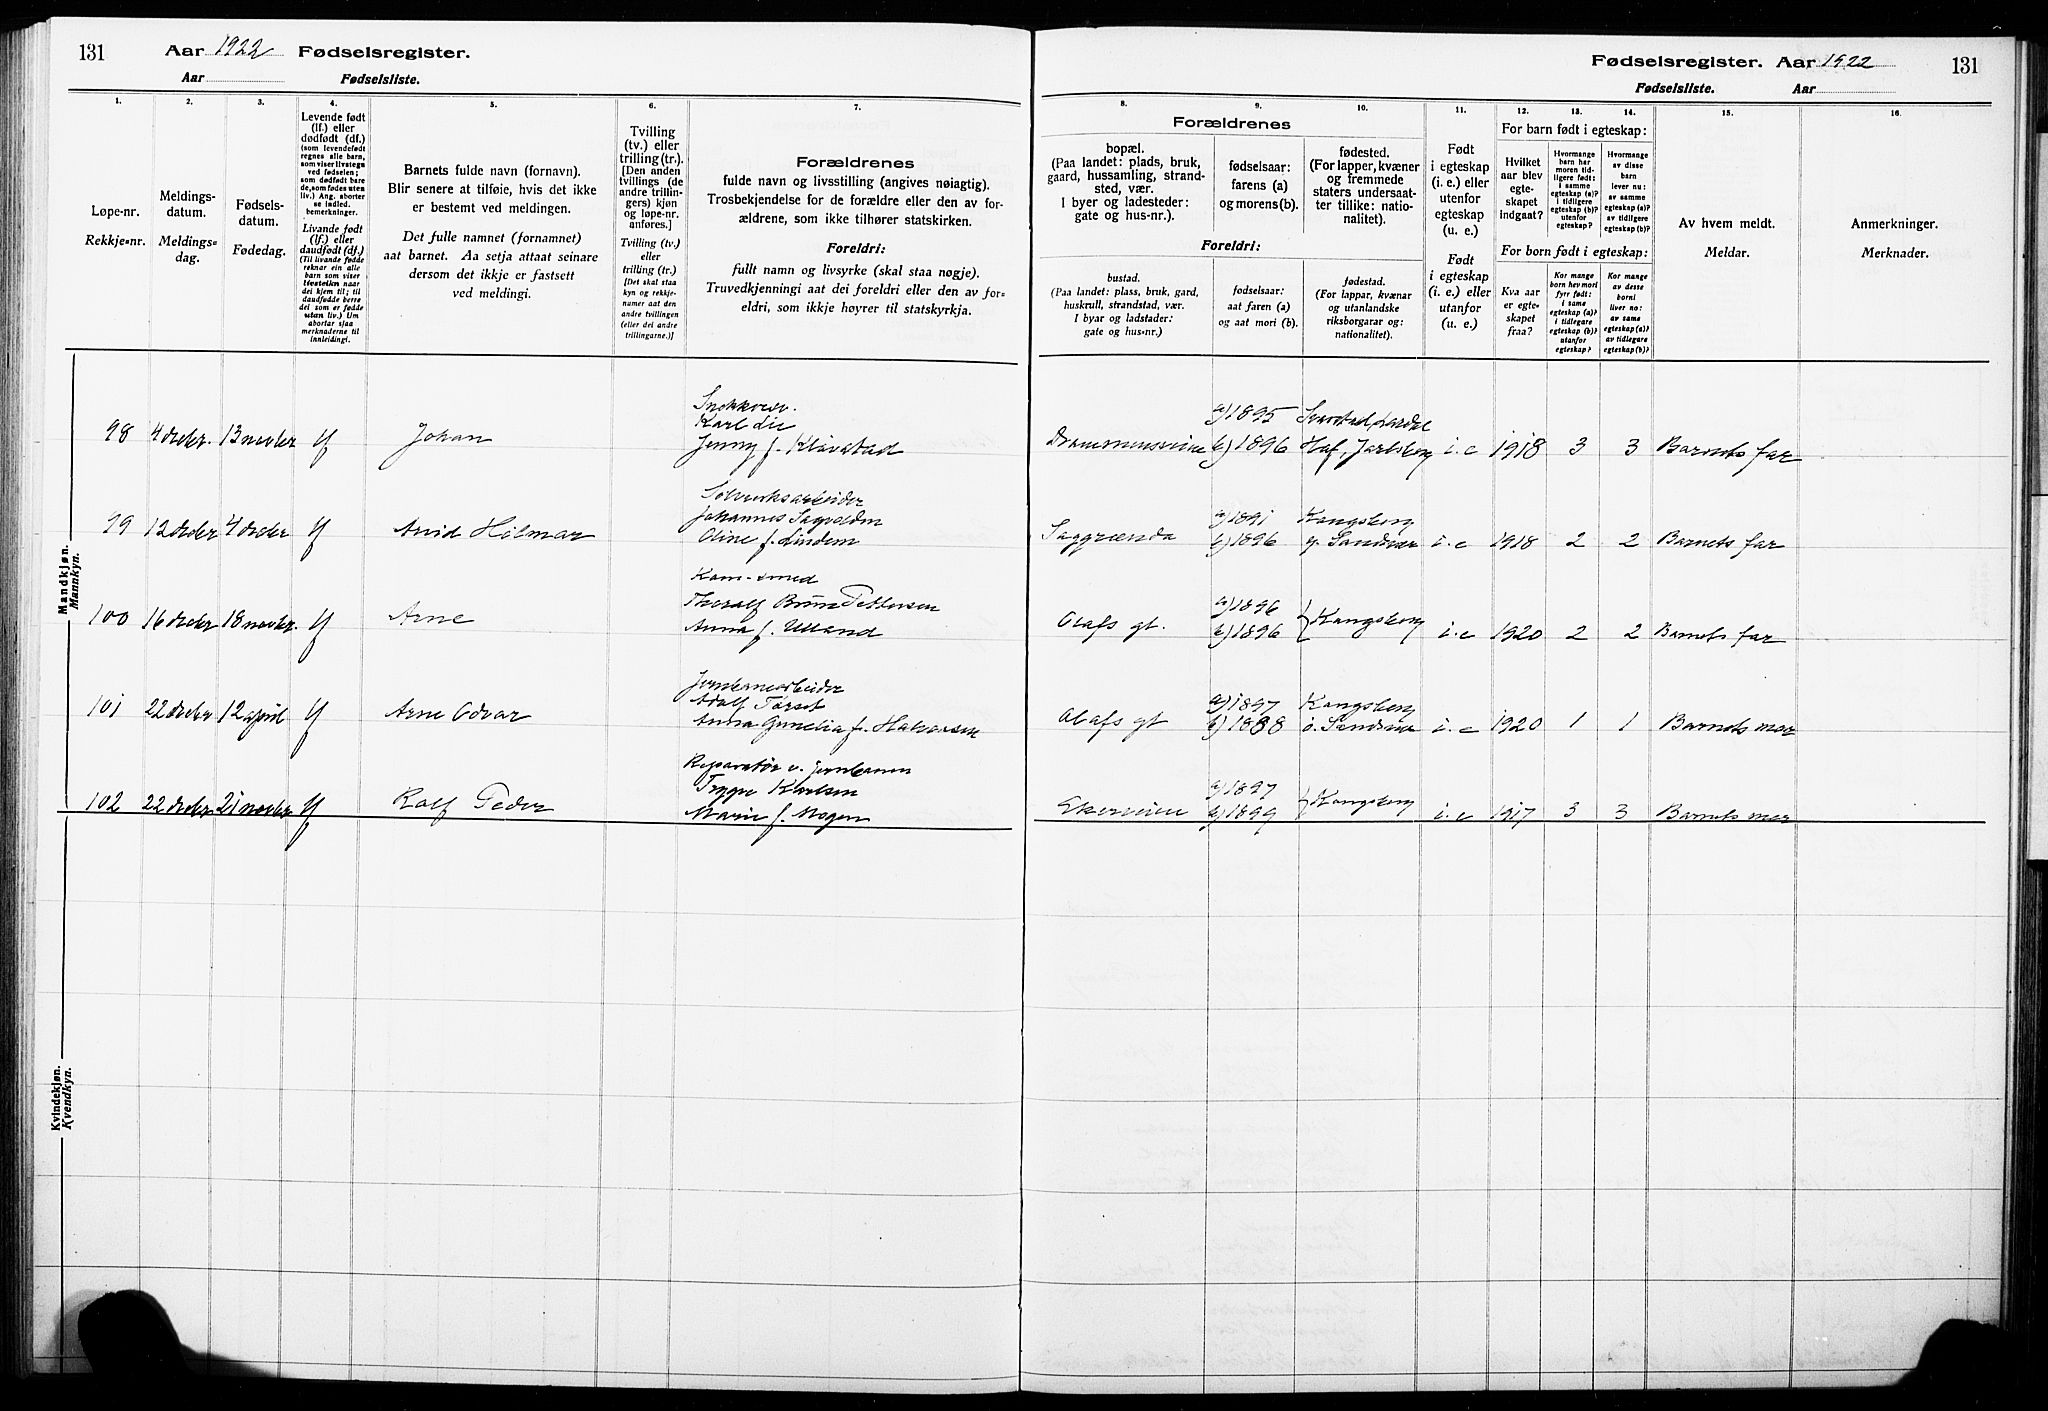 131 Aar 1922 Fødselsregister.
Aar Fødselsliste.
1.
Løpe-nr.
Rekkje-nr.
2.
Meldings-
datum.
Meldings-
dag.
3.
Fødsels-
datum.
Fødedag.
4.
Levende født
(lf.) eller
dødfødt (df.)
(som levendefødt
regnes alle barn,
som viser livstegn
ved fødselen;
som dødfødt bare
de, som fødes uten
liv.) Ang. aborter
se indled.
bemerkninger.
Livande født
(lf.) eller
daudfødt (df.)
(Til livande fødde
reknar ein alle
barn som viser
livsteikn naar
dei kjem til; til
daudfødde berre
dei som er fødde
utan liv.) Um
abortar sjaa
merknaderne til
innleidingi.
5.
Barnets fulde navn (fornavn).
Blir senere at tilføie, hvis det ikke
er bestemt ved meldingen.
Det fulle namnet (fornamnet)
aat barnet. Aa setja attaat seinare
dersom det ikkje er fastsett
ved meldingi.
6.
Tvilling
(tv.) eller
trilling (tr.).
[Den anden
tvillings (de
andre trillin-
gers) kjøn
og løpe-nr.
anføres.]
Tvilling (tv.)
eller
trilling (tr.)
[Det skal staa
kyn og rekkje-
numer aat den
andre tvillingen
(eller dei andre
trillingarne.)]
7.
Forældrenes
fulde navn og livsstilling (angives nøiagtig).
Trosbekjendelse for de forældre eller den av for-
ældrene, som ikke tilhører statskirken.
Foreldri:
fullt namn og livsyrke (skal staa nøgje).
Truvedkjenningi aat dei foreldri eller den av for-
eldri, som ikkje høyrer til statskyrkja.
Mandkjøn.
Mannkyn.
98 4 decbr. 13 novbr lf Johan
Karl Lie
Jenny f. Klavestad
99 12 decbr 4 decbr lf Arvid Hilmar
Sølverksarbeider
Johannes Sagvolden
Oline f. Lindem
100 16 decbr 18 novbr. lf Arne
Thoralf Bruun Pettersen
Anna f. Ulland
101 22 decbr 12 april lf Arne Odvar
Jernbanearbeider
Adolf Torset
Anna f. Halvorsen
102 22 decbr 21 novbr lf Rolf Peder
Reparatør v. jernbanen
Trygve Karlsen
Marie f. Mogen
Kvindekjøn.
Kvendkyn.
Fødselsregister. Aar 1922 131
Fødselsliste. Aar
Forældrenes
8.
bopæl.
(Paa landet: plads, bruk,
gaard, hussamling, strand-
sted, vær.
I byer og ladesteder:
gate og hus-nr.).
9.
fødselsaar:
farens (a)
og morens (b).
10.
fødested.
(For lapper, kvæner
og fremmede
staters undersaat-
ter tillike: natio-
nalitet).
Foreldri:
bustad.
(Paa landet: plass, bruk, gard,
huskrull, strandstad, vær.
I byar og ladstader:
gate og hus-nr.)
fødselsaar:
aat faren (a)
og aat mori (b).
fødestad.
(For lappar, kvænar
og utanlandske
riksborgarar og:
nationalitet).
11.
Født
i egteskap
(i. e.) eller
utenfor
egteskap
(u. e.)
Født
i egteskap
(i. e.) eller
utanfor
(u. e.)
For barn født i egteskap:
12.
Hvilket
aar blev
egte-
skapet
indgaat?
13.
Hvormange
barn har
moren tid-
ligere født:
i samme
egteskap (a)?
i tidligere
egteskap (b)?
utenfor
egteskap?
14.
Hvormange
av disse
barn
lever nu:
av samme
egteskap (a)?
av tidligere
egteskap (b)?
For born født i egteskap:
Kva aar
er egte-
skapet
fraa?
Kor mange
born hev mori
fyrr født:
i same
egteskap (a)?
i tidlegare
egteskap (b)?
utanfor
egteskap?
Kor mange
av desse
borni
liver no:
av same
egteskap (a)?
av tidlegare
egteskap (b)?
15.
Av hvem meldt.
Meldar.
16.
Anmerkninger.
Merknader.
Drammensveien a) 1895
b) 1896 Hof, Jarlsberg i. e 1918 3 3 Barnets far
Saggrenda a) 1891 Kongsberg
b) 1896 Sandsvær i. e 1918 2 2 Barnets far
Olafs gt. a) 1896
b) 1896 } Kongsberg i. e 1920 2 2 Barnets far
Olafs gt a) 1897 Kongsberg
b) 1888 ø. Sandsvær i. e 1920 1 1 Barnets mor
Ekerveien a) 1897
b) 1899 } Kongsberg i. e 1917 3 3 Barnets mor